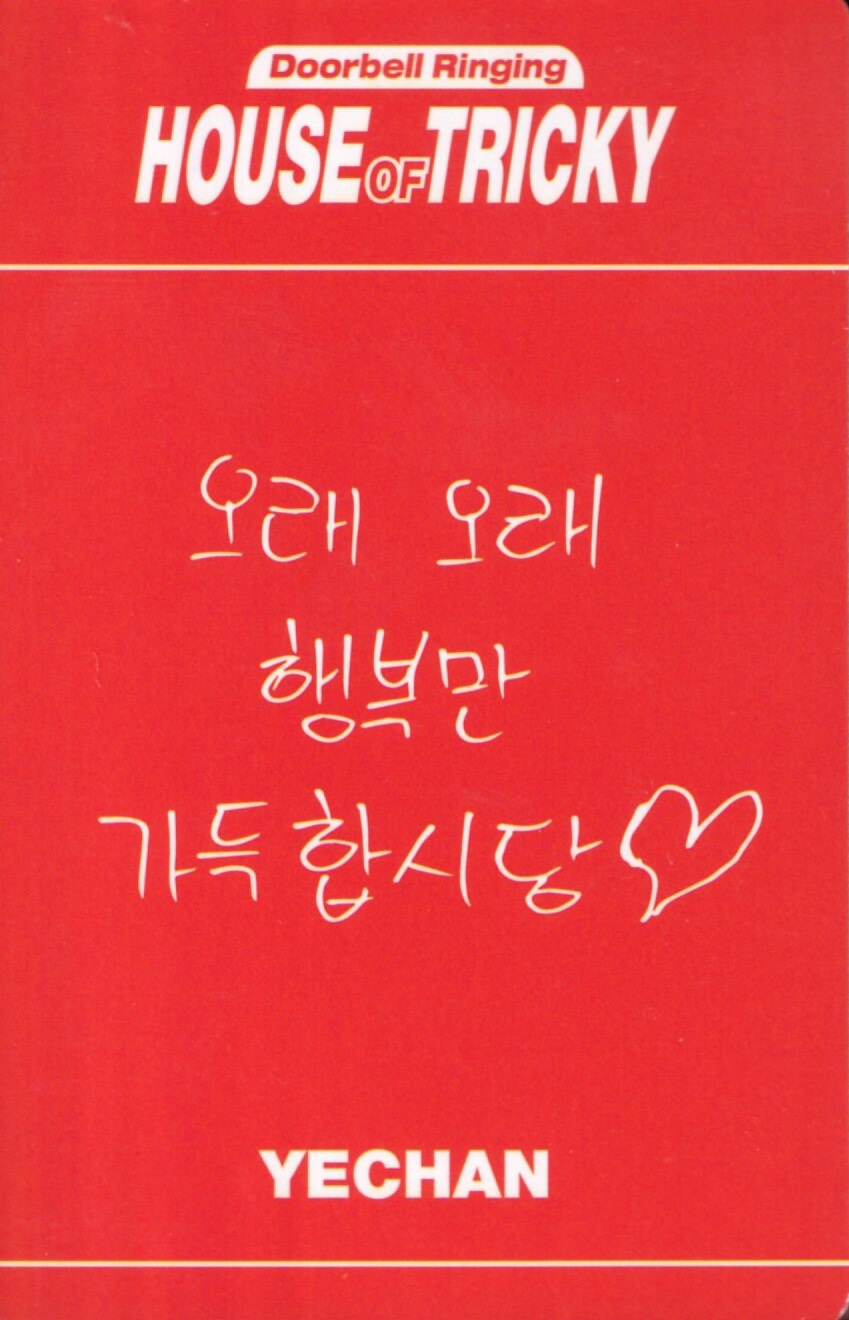 Doorbell Ringing
HOUSE OF TRICKY
오래 오래
행복만
가득합시당♡
YECHAN